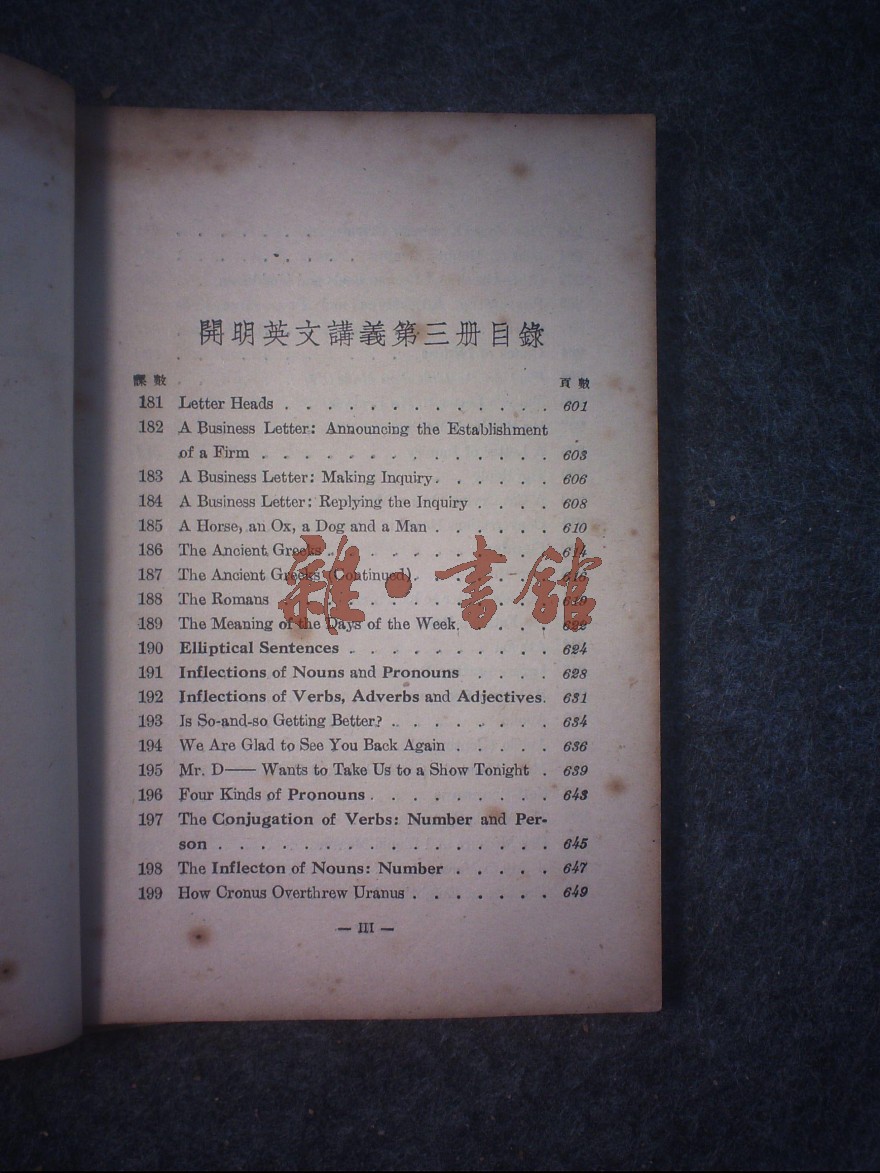 開明英文講義第三册目錄
課數 頁數
181 Letter Heads . . . . . . . . . . . . . 601
182 A Business Letter: Announcing the Establishment
of a Firm . . . . . . . . . . . . . . 603
183 A Business Letter: Making Inquiry. . . . . . 606
184 A Business Letter: Replying the Inquiry . . . . . 608
185 A Horse, an Ox, a Dog and a Man . . . . . . 610
186 The Ancient Greeks . . . . . . . . . . . 614
187 The Ancient Greeks (Continued). . . . . . 616
188 The Romans . . . . . . . . . . . . . 619
189 The Meaning of the Days of the Week. . . . . 622
雜·書館
190 Elliptical Sentences . . . . . . . . . . 624
191 Inflections of Nouns and Pronouns . . . . 628
192 Inflections of Verbs, Adverbs and Adjectives. 631
193 Is So-and-so Getting Better? . . . . . . . 634
194 We Are Glad to See You Back Again . . . . . 636
195 Mr. D—— Wants to Take Us to a Show Tonight . 639
196 Four Kinds of Pronouns . . . . . . . . . 643
197 The Conjugation of Verbs: Number and Per-
son . . . . . . . . . . . . . . . . 645
198 The Inflecton of Nouns: Number . . . . . 647
199 How Cronus Overthrew Uranus . . . . . . . 649
— III —